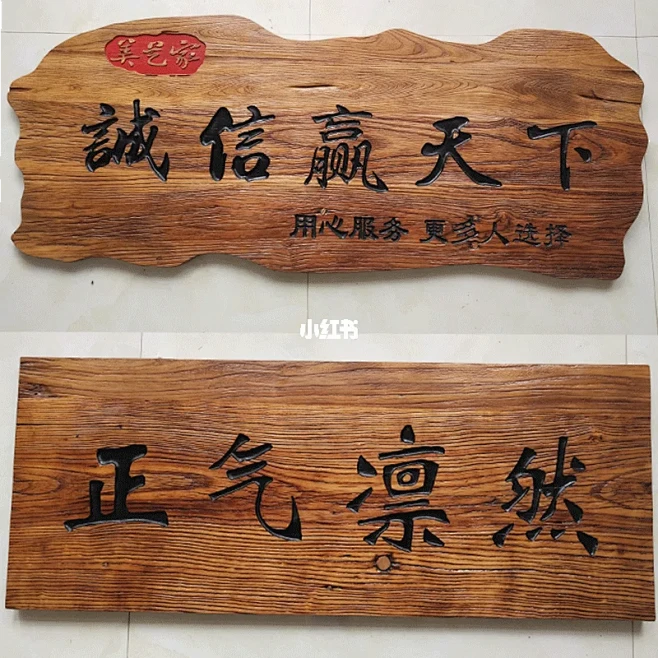 美艺家
誠信赢天下
用心服务 更多人选择
小红书
正气凛然